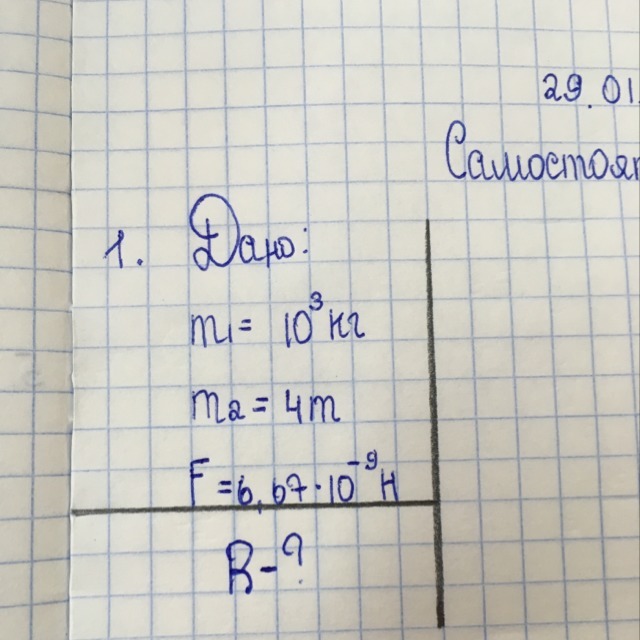 29.01.
Самостоят
1. Дано:
m₁ = 10³ кг
m₂ = 4m
F = 6,67·10⁻⁹ Н
R - ?